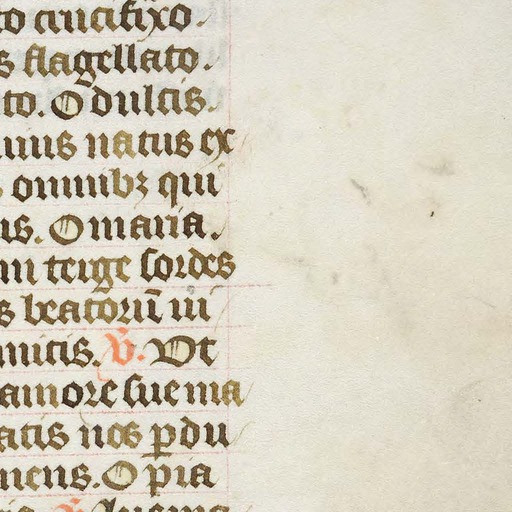 to crucifixo.
s flagellato.
to. O dulcis.
imus natus ex
omnibꝫ qui
us. O maria.
terge sordes
s beatorū in
mitis. V. Vt
amore sue ma
atis nos ꝑdu
mens. O pia